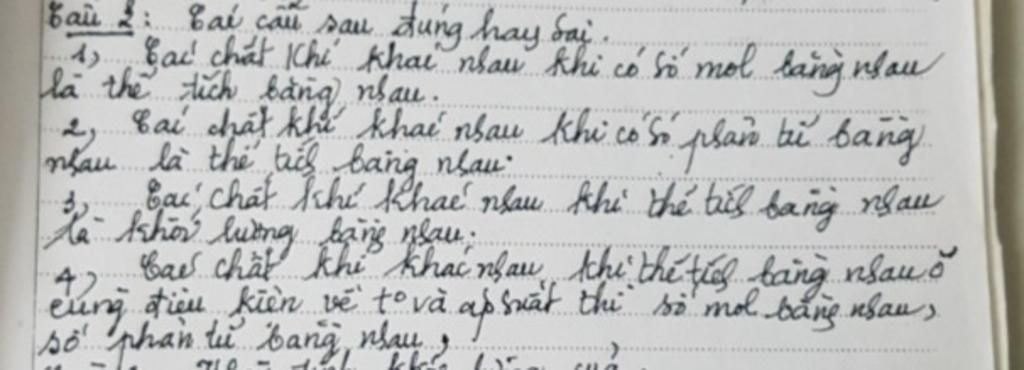 Câu 2: Các câu sau đúng hay sai.
1, Các chất khí khác nhau khi có số mol bằng nhau
là thể tích bằng nhau.
2, Các chất khí khác nhau khi có số phân tử bằng
nhau là thể tích bằng nhau.
3, Các chất khí khác nhau khi thể tích bằng nhau
là khối lượng bằng nhau.
4, Các chất khí khác nhau khi thể tích bằng nhau ở
cùng điều kiện về t° và áp suất thì số mol bằng nhau,
số phân tử bằng nhau,